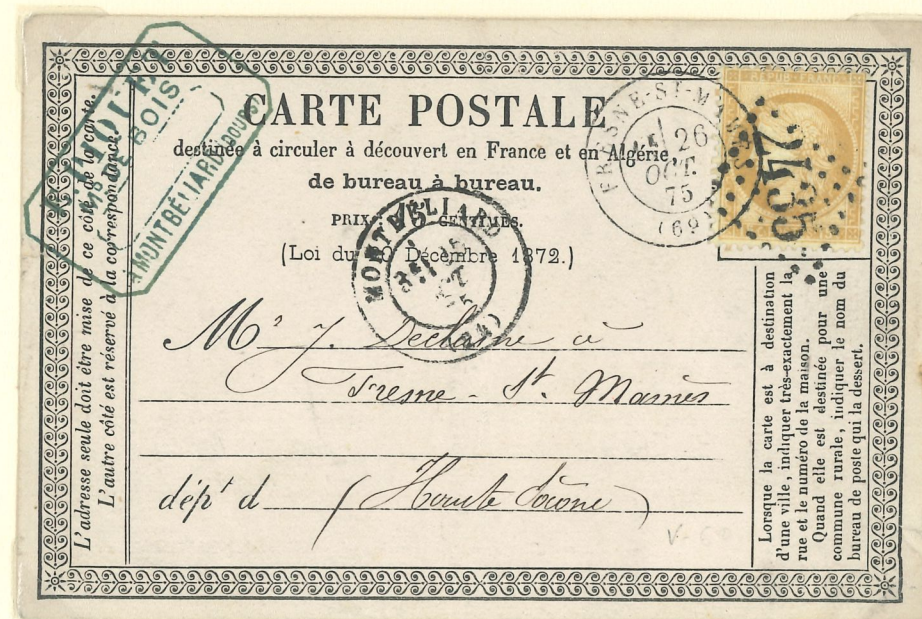 DE BOIS
A MONTBÉLIARD (DOUBS)
CARTE POSTALE
destinée à circuler à découvert en France et en Algérie
de bureau à bureau.
PRIX: 15 CENTIMES.
(Loi du 20 Décembre 1872.)
RÉPUB. FRANC.
FRESNE-ST-MAMÈS
26
OCT.
75
(69)
MONTBÉLIARD
75
(24)
L'adresse seule doit être mise de ce côté de la carte.
L'autre côté est réservé à la correspondance.
Mr J. Declasne à
Fresne-St. Mamès
dépt d (Haute Saône)
Lorsque la carte est à destination
d'une ville, indiquer très-exactement la
rue et le numéro de la maison.
Quand elle est destinée pour une
commune rurale, indiquer le nom du
bureau de poste qui la dessert.